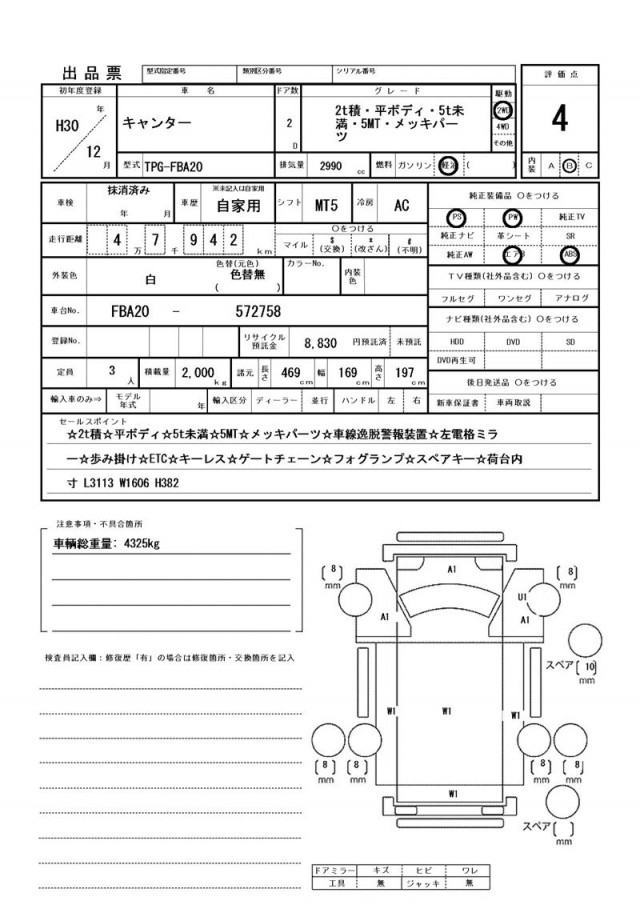 出品票
型式指定番号 類別区分番号 シリアル番号
評価点
4
内装 A B C
初年度登録 車名 ドア数 グレード 駆動
H30 年
12 月
キャンター
2 D
2t積・平ボディ・5t未
満・5MT・メッキパー
ツ
2WD
4WD
その他
型式 TPG-FBA20 排気量 2990 cc 燃料 ガソリン 軽油 ( )
車検 抹消済み 年 月 車歴 ※未記入は自家用 自家用 シフト MT5 冷房 AC
走行距離 4 万 7 千 9 4 2 km
〇をつける
マイル $ (交換) * (改ざん) # (不明)
外装色 白 色替(元色) 色替無 ( ) カラーNo. 内装色
車台No. FBA20 - 572758
登録No. リサイクル預託金 8,830 円預託済 未預託
定員 3 人 積載量 2,000 kg 諸元 長さ 469 cm 幅 169 cm 高さ 197 cm
輸入車のみ⇒ モデル年式 年 輸入区分 ディーラー 並行 ハンドル 左 右
純正装備品 〇をつける
PS PW 純正TV
純正ナビ 革シート SR
純正AW エアB ABS
TV種類(社外品含む) 〇をつける
フルセグ ワンセグ アナログ
ナビ種類(社外品含む) 〇をつける
HDD DVD SD
DVD再生可
後日発送品 〇をつける
新車保証書 車両取説
セールスポイント
☆2t積☆平ボディ☆5t未満☆5MT☆メッキパーツ☆車線逸脱警報装置☆左電格ミラ
ー☆歩み掛け☆ETC☆キーレス☆ゲートチェーン☆フォグランプ☆スペアキー☆荷台内
寸 L3113 W1606 H382
注意事項・不具合箇所
車輌総重量: 4325kg
検査員記入欄：修復歴「有」の場合は修復箇所・交換箇所を記入
[8] mm
A1
[8] mm
A1
U1
A1
スペア [10] mm
W1
W1
W1
[8] mm
[8] mm
[8] mm
[8] mm
W1
スペア [ ] mm
ドアミラー キズ ヒビ ワレ
工具 無 ジャッキ 無